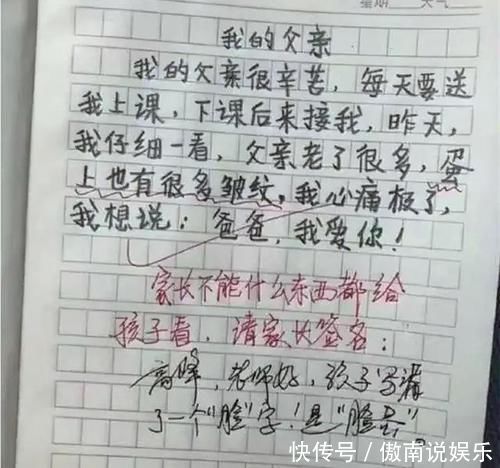 星期 天气
我的父亲
我的父亲很辛苦，每天要送
我上课，下课后来接我，昨天，
我仔细一看，父亲老了很多，蛋
上也有很多皱纹，我心痛极了，
我想说：爸爸，我爱你！
家长不能什么东西都给
孩子看，请家长签名：
高峰，老师好，孩子写错
了一个"脸"字！是"脸蛋"
快传号/傲南说娱乐